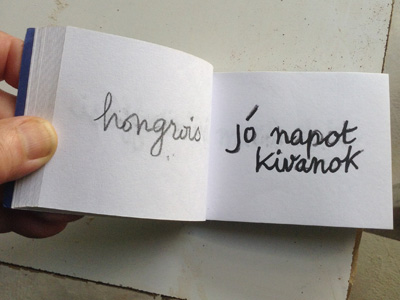 hongrois
jó napot
kivanok